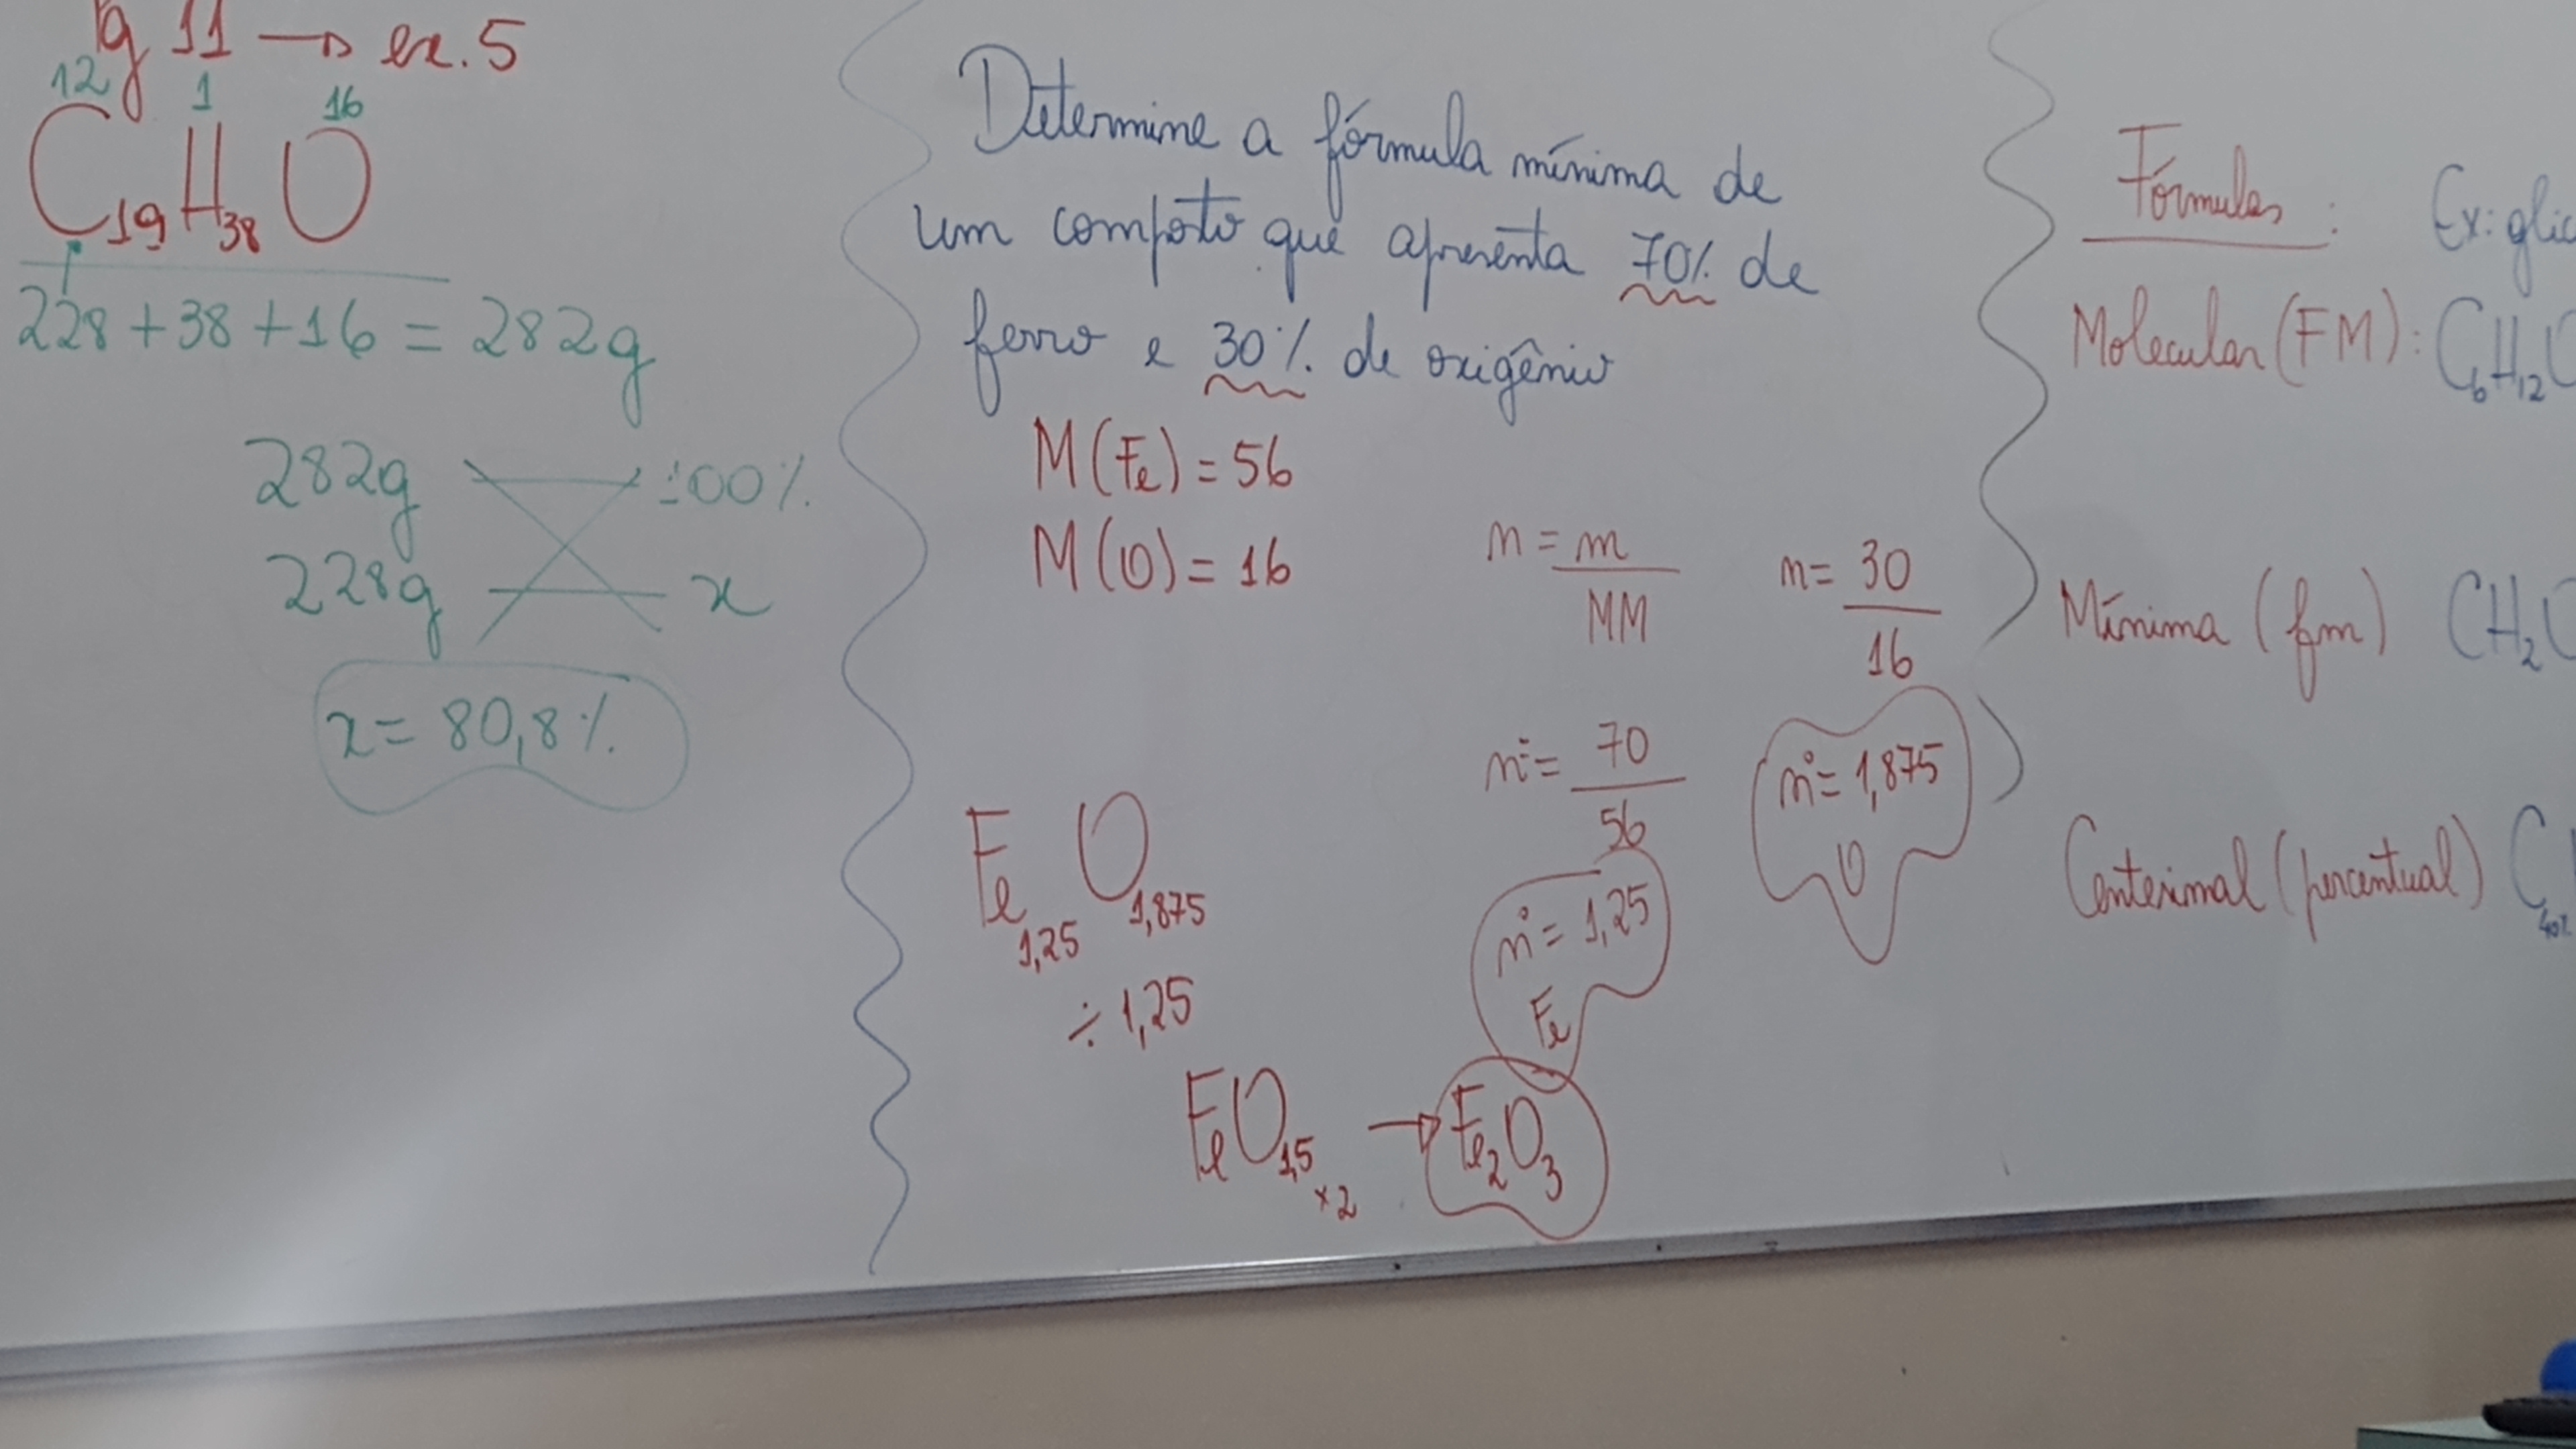 Pg 11 → ex. 5
12 1 16
C19H38O
228+38+16 = 282g
282g 100%
228g x
x = 80,8%
Determine a fórmula mínima de
um composto que apresenta 70% de
ferro e 30% de oxigênio
M(Fe) = 56
M(O) = 16
n = m
MM
n = 30
16
n = 70
56
n = 1,875
O
n = 1,25
Fe
Fe1,25 O1,875
÷ 1,25
FeO1,5 ×2 → Fe2O3
Fórmulas: Ex: glic
Molecular (FM): C6H12O
Mínima (fm) CH2O
Centesimal (percentual) C40%